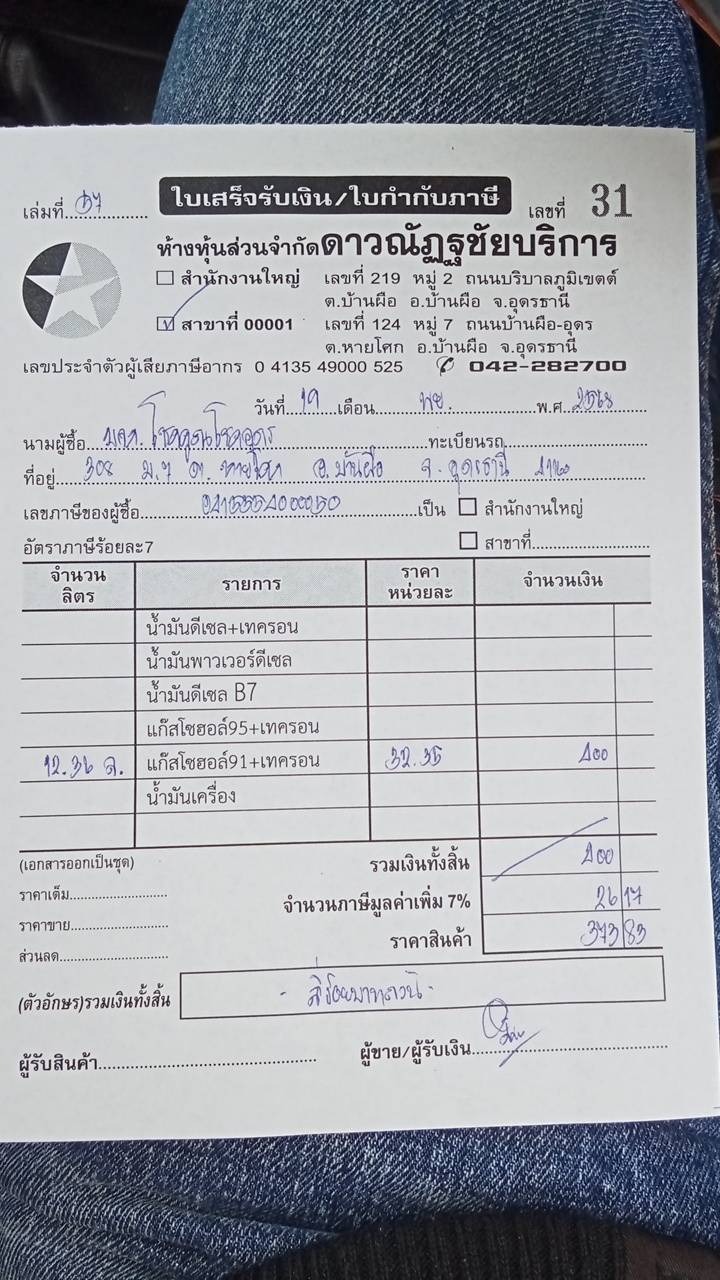 เล่มที่ 57 ใบเสร็จรับเงิน/ใบกำกับภาษี เลขที่ 31
ห้างหุ้นส่วนจำกัดดาวณัฏฐชัยบริการ
สำนักงานใหญ่ เลขที่ 219 หมู่ 2 ถนนบริบาลภูมิเขตต์
ต.บ้านผือ อ.บ้านผือ จ.อุดรธานี
สาขาที่ 00001 เลขที่ 124 หมู่ 7 ถนนบ้านผือ-อุดร
ต.หายโศก อ.บ้านผือ จ.อุดรธานี
เลขประจำตัวผู้เสียภาษีอากร 0 4135 49000 525 042-282700
วันที่ 19 เดือน พย. พ.ศ. 2568
นามผู้ซื้อ ทะเบียนรถ
ที่อยู่ 308 ม.7 ต. หายโศก อ.บ้านผือ จ.อุดรธานี
เลขภาษีของผู้ซื้อ เป็น สำนักงานใหญ่
อัตราภาษีร้อยละ7 สาขาที่
จำนวน ลิตร รายการ ราคา หน่วยละ จำนวนเงิน
น้ำมันดีเซล+เทครอน
น้ำมันพาวเวอร์ดีเซล
น้ำมันดีเซล B7
แก๊สโซฮอล์95+เทครอน
12.36 ล. แก๊สโซฮอล์91+เทครอน 32.35 400
น้ำมันเครื่อง
(เอกสารออกเป็นชุด) รวมเงินทั้งสิ้น 400
ราคาเต็ม จำนวนภาษีมูลค่าเพิ่ม 7% 26 17
ราคาขาย ราคาสินค้า 373 83
ส่วนลด
(ตัวอักษร)รวมเงินทั้งสิ้น - สี่ร้อยบาทถ้วน -
ผู้รับสินค้า ผู้ขาย/ผู้รับเงิน